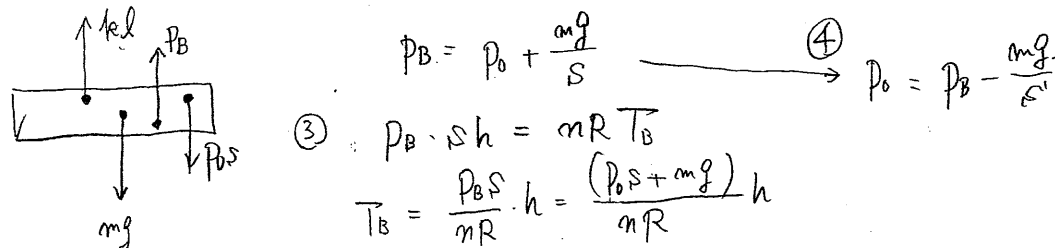 kl
P_B
P_0 S
mg
P_B = P_0 + mg/S → ④ P_0 = P_B - mg/S
③ P_B · S h = nR T_B
T_B = P_B S/nR · h = (P_0 S + mg)/nR h